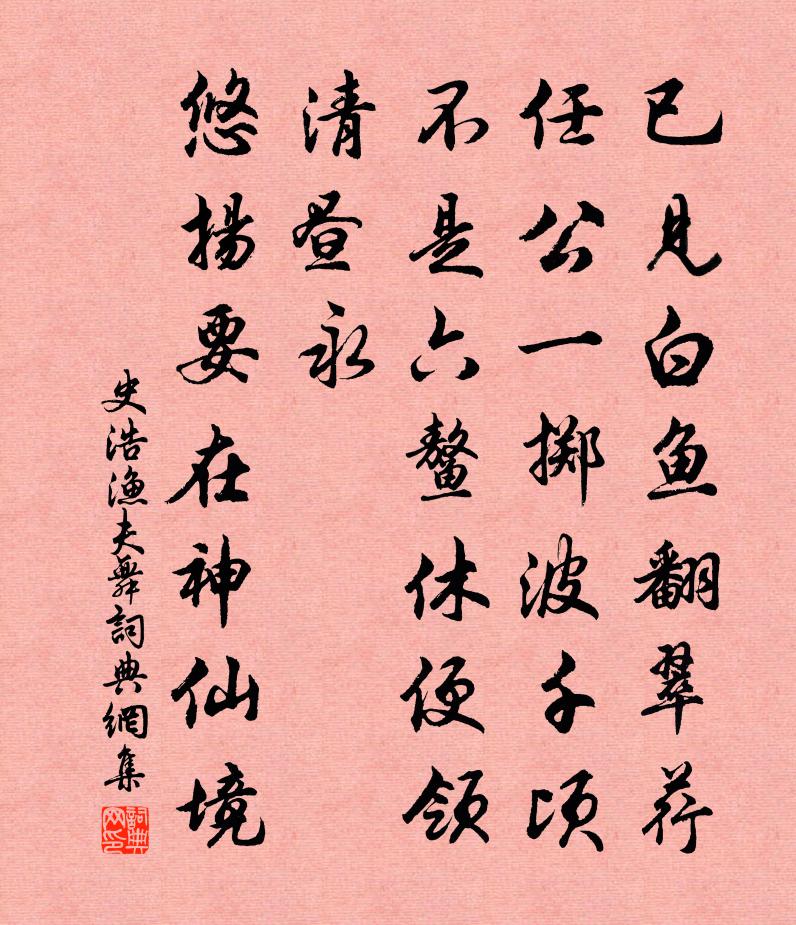 已见白鱼翻翠荇
任公一掷波千顷
不是六鳌休便领
清昼永
悠揚要在神仙境
史浩漁夫舞詞典網集
詞典网印